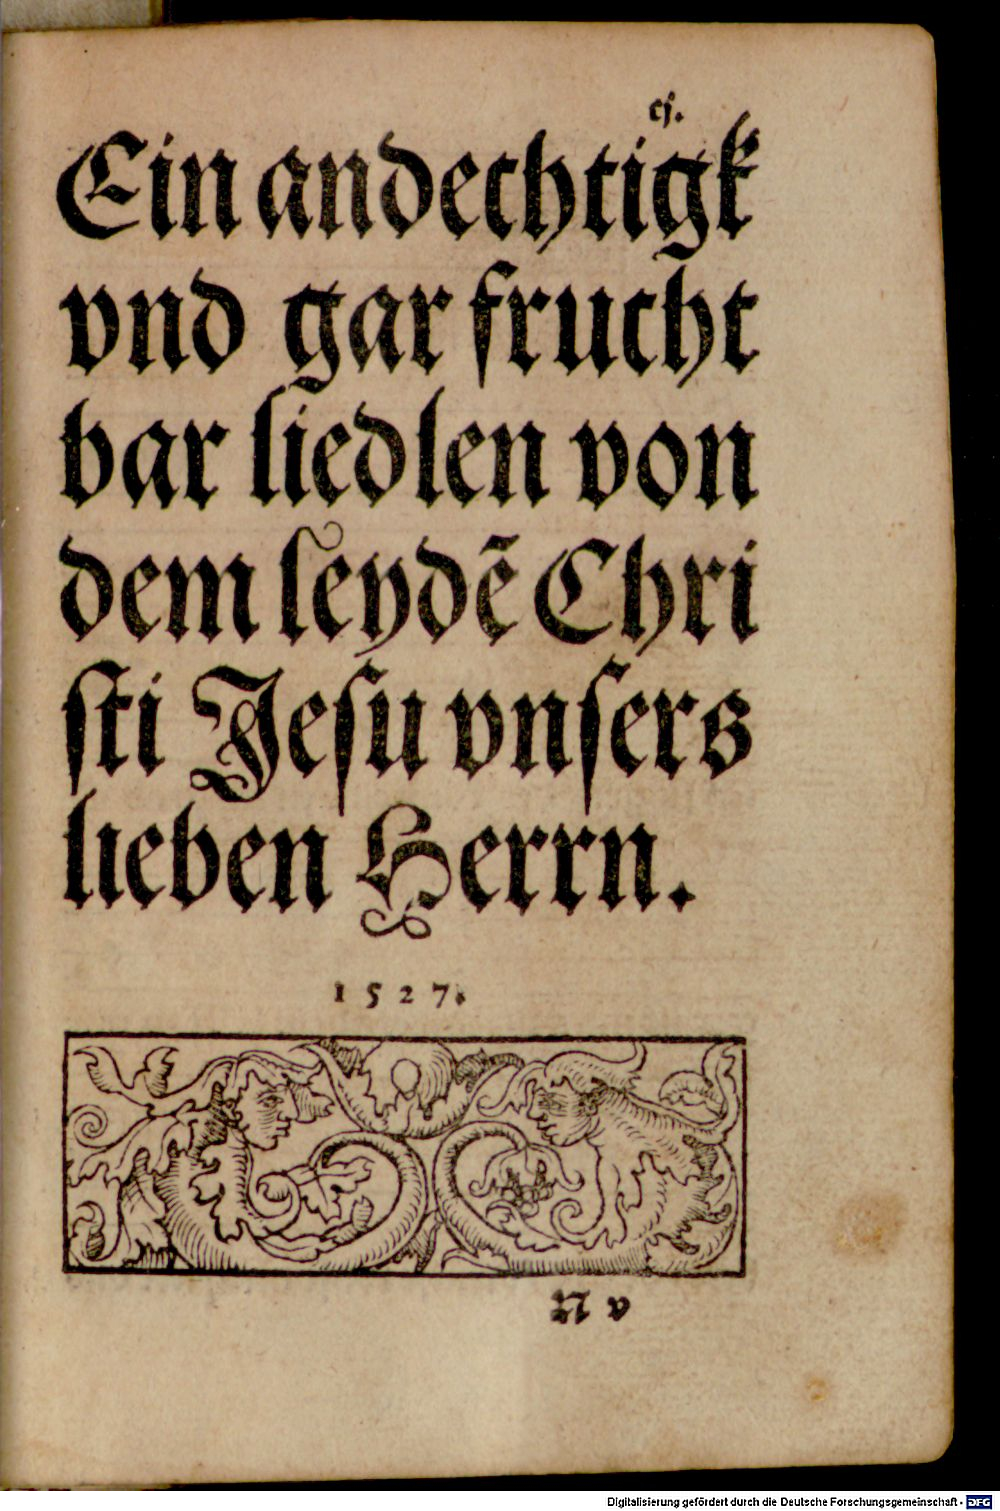 cj.
Ein andechtigk
vnd gar frucht
bar liedlen von
dem leydẽ Chri
sti Jesu vnsers
lieben Herrn.
1527.
N v
Digitalisierung gefördert durch die Deutsche Forschungsgemeinschaft - DFG